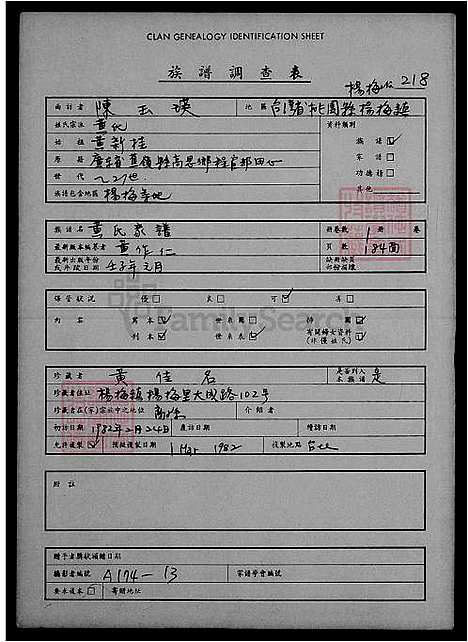 CLAN GENEALOGY IDENTIFICATION SHEET
族譜調查表
楊梅 218
面訪者 陳玉瑛 地區 台灣省桃園縣楊梅鎮
姓氏宗派 黃氏 資料類別
始祖 黃新桂 族譜
原籍 家譜
世代 功德榜
族譜包含地區 楊梅等地 其他
族譜名 黃氏家譜 冊卷數 1 冊 卷
最新版本編纂者 黃作仁 頁數 184面
最新出版年份或年狀日期 壬子年元月 缺卷缺頁部份損壞
保管狀況 優 良 可 差
內容 寫本 世系圖 神圖
刊本 世系表 有關婦女資料(非僅姓氏)
FamilySearch
珍藏者 黃佳名 是否列入本族譜 是
珍藏者住址 楊梅鎮楊梅里大成路102号
珍藏者在(宗)族中之地位 裔孫 介紹者
初訪日期 1982年2月24日 複訪日期 續訪日期
允許複製 預擬複製日期 1 Mar 1982 複製地點 台北
附註
贈予者獎狀頒贈日期
攝影者編號 A174-13 家譜學會編號
要求複本 寄贈地址